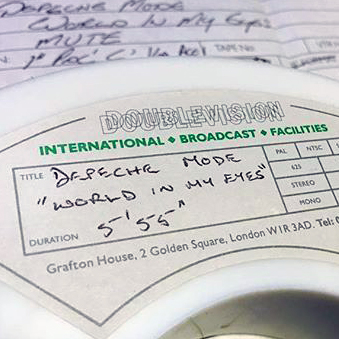 DEPECHE MODE
WORLD IN MY EYES
MUTE
TAPE NO
DOUBLEVISION
INTERNATIONAL ◆ BROADCAST ◆ FACILITIES
TITLE DEPECHE MODE
"WORLD IN MY EYES"
DURATION 5' 55"
PAL NTSC
625
STEREO
MONO
Grafton House, 2 Golden Square, London W1R 3AD. Tel: